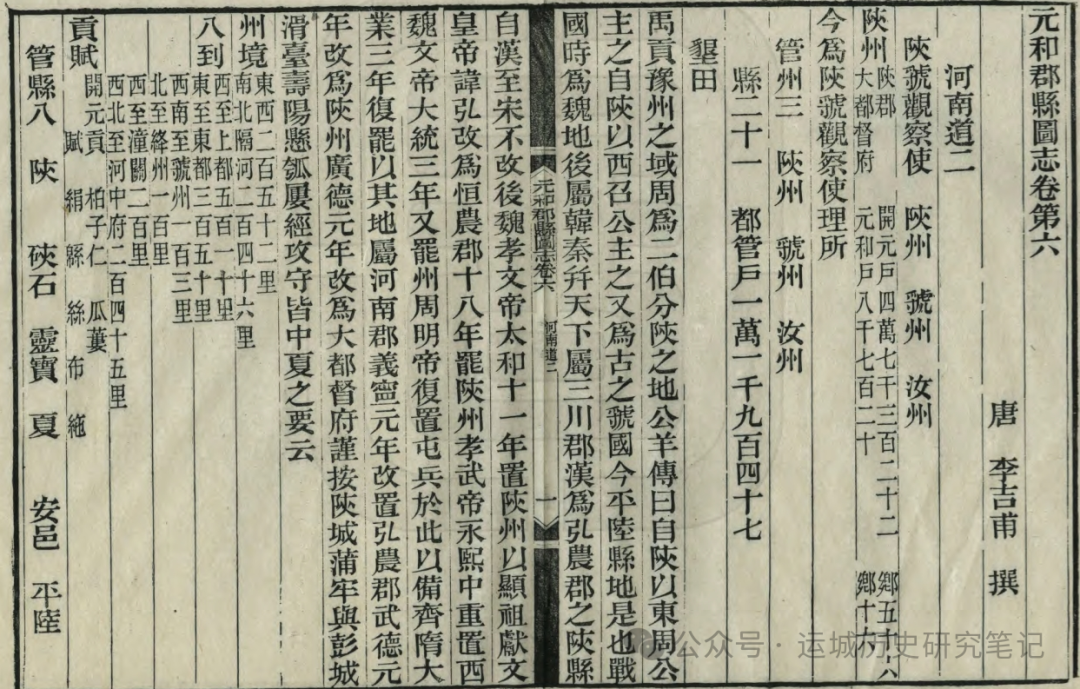 元和郡縣圖志卷第六
唐 李吉甫 撰
河南道二
陜虢觀察使 陜州 虢州 汝州
陜州 陜郡 開元戶四萬七千三百二十二 鄉五十八
大都督府 元和戶八千七百二十 鄉十六
今為陜虢觀察使理所
管州三 陜州 虢州 汝州
縣二十一 都管戶一萬一千九百四十七
墾田
禹貢豫州之域周為二伯分陜之地公羊傳曰自陜以東周公
主之自陜以西召公主之又為古之虢國今平陸縣地是也戰
國時為魏地後屬韓秦并天下屬三川郡漢為弘農郡之陜縣
元和郡縣圖志卷六 河南道二 一
自漢至宋不改後魏孝文帝太和十一年置陜州以顯祖獻文
皇帝諱弘改為恒農郡十八年罷陜州孝武帝永熙中重置西
魏文帝大統三年又罷州周明帝復置屯兵於此以備齊隋大
業三年復罷以其地屬河南郡義寧元年改置弘農郡武德元
年改為陜州廣德元年改為大都督府謹按陜城蒲牢與彭城
滑臺壽陽懸瓠屢經攻守皆中夏之要云
州境 東西二百五十二里
南北隔河二百四十六里
八到 西至上都五百一十里
東至東都三百五十里
西南至虢州一百三里
北至絳州一百里
西至潼關二百里
西北至河中府二百四十五里
貢賦 開元貢 柏子仁 瓜蔞
賦 絹 緜 絲 布 絁
管縣八 陜 硤石 靈寶 夏 安邑 平陸
公众号·运城历史研究笔记